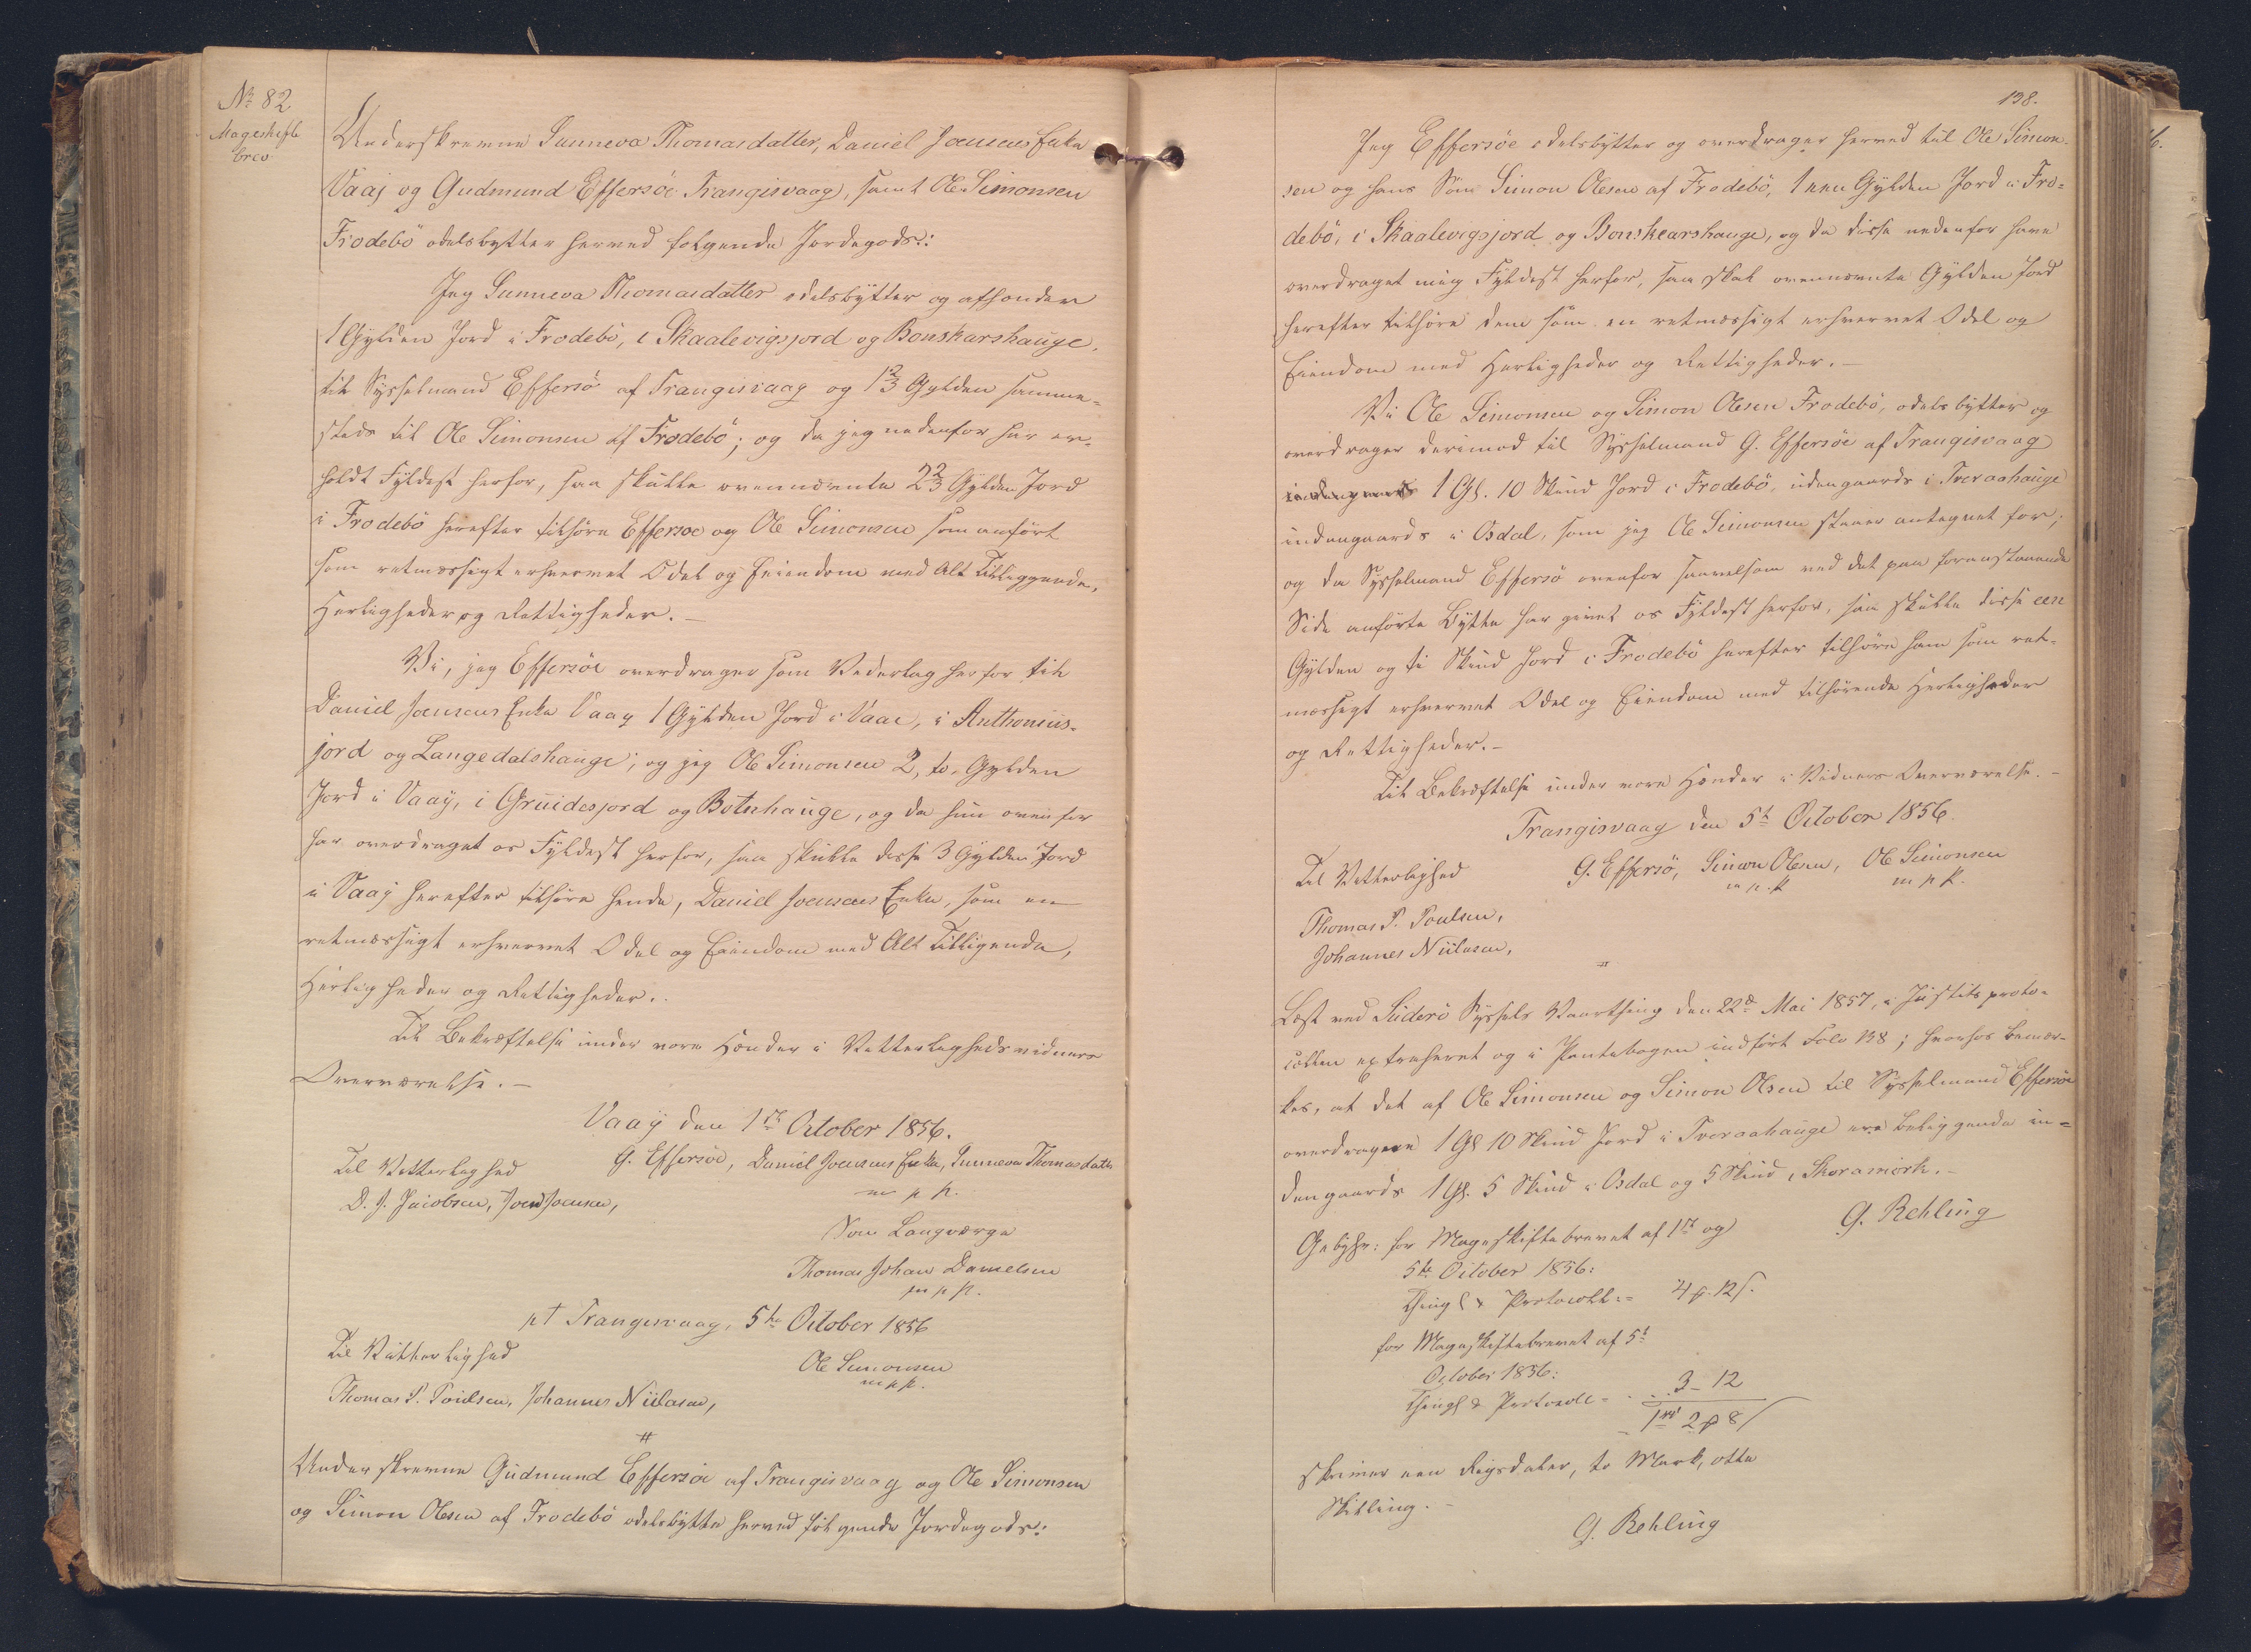 No 82
Mageskifte
brev
Underskrevne Sunneva Thomasdatter, Daniel Joensens Enke
Vaaj og Gudmund Effersöe Trangisvaag, samt Ole Simonsen
Frodebö odelsbytter herved følgende Jordegods:
Jeg Sunneva Thomasdatter odelsbytter og afhonder
1 Gylden Jord i Frodebö, i Skaalevigsjord og Bonskarshauge,
til Sysselmand Effersö af Trangisvaag og 1 2/3 Gylden samme-
steds til Ole Simonsen af Frodebö; og da jeg nedenfor har er-
holdt Fyldest herfor, saa skulle ovennævnte 2 2/3 Gylden Jord
i Frodebö herefter tilhøre Effersoe og Ole Simonsen som anført
som retmæssigt erhvervet Odel og Eiendom med Alt Tilliggende,
Herligheder og Rettigheder.-
Vi, jeg Effersöe overdrager som Vederlag herfor til
Daniel Joensens Enke Vaag 1 Gylden Jord i Vaae, i Anthoniis-
jord og Langedalshauge; og jeg Ole Simonsen 2, to, Gylden
Jord i Vaaÿ, i Gruidesjord og Botnhauge, og da hun ovenfor
har overdraget os Fyldest herfor, saa skulle disse 3 Gylden Jord
i Vaaÿ herefter tilhøre hende, Daniel Joensens Enke, som en
retmæssigt erhvervet Odel og Eiendom med Alt Tilligende,
Herligheder og Rettigheder..
Til Bekræftelse under vore Hænder i Vitterlighedsvidners
Overværelse.-
Vaaÿ den 1ste October 1856.
Til Vitterlighed G. Effersöe, Daniel Joensens Enke, Sunneva Thomasdatter
D. J. Jacobsen, Joen Joensen, m p p.
Som Laugværge
Thomas Johan Danielsen
m p p.
pt Trangisvaag, 5te October 1856
Til Vitterlighed Ole Simonsen
m p p.
Thomas P. Poulsen, Johannes Niilasen,
#
Underskrevne Gudmund Effersöe af Trangisvaag og Ole Simonsen
og Simon Olesen af Frodebö odelsbytte herved følgende Jordegods:
138.
Jeg Effersöe odelsbytter og overdrager herved til Ole Simon-
sen og hans Søn Simon Olesen af Frodebö, 1 een Gylden Jord i Fro-
debö, i Skaalevigsjord og Bonskearshauge, og da disse nedenfor have
overdraget mig Fyldest herfor, saa skal ovennævnte Gylden Jord
herefter tilhøre dem som en retmæssigt erhvervet Odel og
Eiendom med Herligheder og Rettigheder.-
Vi Ole Simonsen og Simon Olesen Frodebö, odelsbytter og
overdrager derimod til Sysselmand G. Effersöe af Trangisvaag
1 Gl. 10 Skind Jord i Frodebö, udengaards i Tveraahauge
indengaards i Osdal, som jeg Ole Simonsen staaer antegnet for;
og da Sysselmand Effersö ovenfor saavelsom ved det paa foranstaaende
Side anførte Bytte har givet os Fyldest herfor, saa skulle disse een
Gylden og ti Skind Jord i Frodebö herefter tilhøre ham som ret-
mæssigt erhvervet Odel og Eiendom med tilhørende Herligheder
og Rettigheder.-
Til Bekræftelse under vore Hænder i Vidners Overværelse.-
Trangisvaag den 5t October 1856.
Til Vitterlighed G. Effersö, Simon Olesen, Ole Simonsen
m p p m p p.
Thomas P. Poulsen,
Johannes Niilasen,
#
Læst ved Süderö Syssels Vaarthing den 22de Mai 1857, i Justitsproto-
collen extraheret og i Pantebogen indført Folio 138; hvorhos bemær-
kes, at det af Ole Simonsen og Simon Olsen til Sysselmand Effersöe
overdragne 1 Gl 10 Skind Jord i Tveraahauge ere beliggende in-
dengaards 1 Gl. 5 Skind i Osdal og 5 Skind i Skoramörk.-
G. Rehling
Gebyhr: for Mageskiftebrevet af 1st og
5te October 1856:
Thingl & Protocoll:= 4 p. 12 s.
for Mageskiftebrevet af 5t
October 1856:
Thingl & Protocoll= .. 3 - 12
1 rd 2 p 8 s
skriver een Rigsdaler, to Mark, otte
Skilling.-
G. Rehling